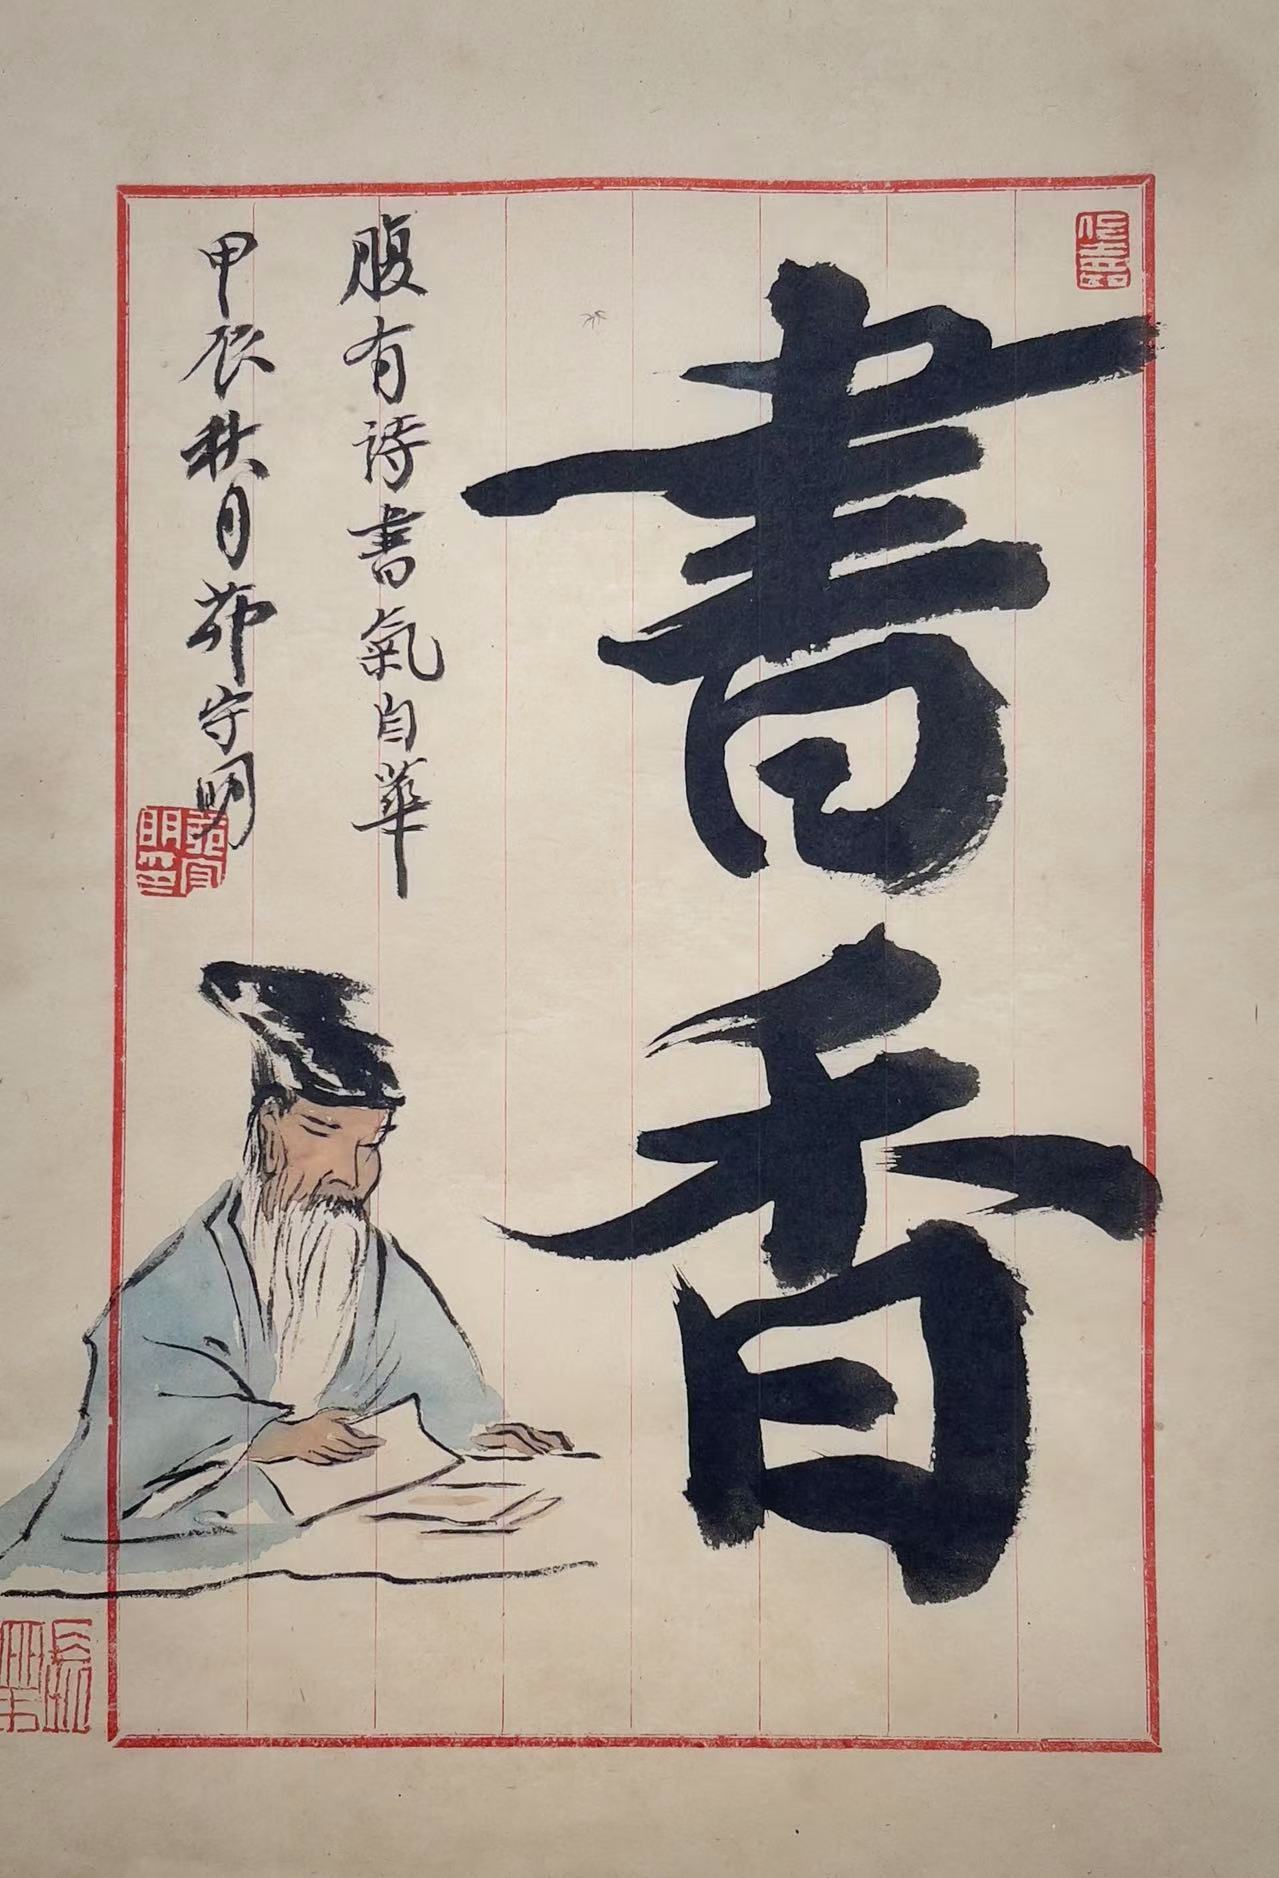 書香
腹有詩書氣自華
甲辰秋月茆守明